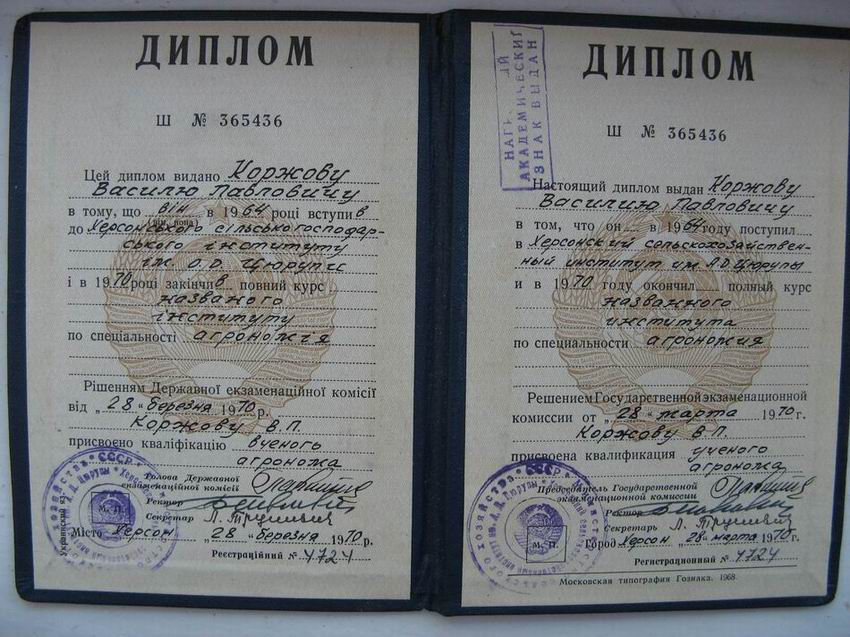 ДИПЛОМ
Ш № 365436
Цей диплом видано Коржову
Василю Павловичу
в тому, що він в 1964 році вступив
(він, вона)
до Херсонського сільськогосподар-
ського інституту
ім. О.Д. Цюрупи
і в 1970 році закінчив повний курс
названого
інституту
по спеціальності агрономія
Рішенням Державної екзаменаційної комісії
від „28“ березня 1970 р.
Коржову В.П.
присвоєно кваліфікацію вченого
агронома
Голова Державної
екзаменаційної комісії
Ректор
Секретар
М. П.
Місто Херсон „28“ березня 1970 р.
Реєстраційний № 4724
НАГРУДНЫЙ
АКАДЕМИЧЕСКИЙ
ЗНАК ВЫДАН
ДИПЛОМ
Ш № 365436
Настоящий диплом выдан Коржову
Василию Павловичу
в том, что он в 1964 году поступил
в Херсонский сельскохозяйствен-
ный институт им. А.Д. Цюрупы
и в 1970 году окончил полный курс
названного
института
по специальности агрономия
Решением Государственной экзаменационной
комиссии от „28“ марта 1970 г.
Коржову В.П.
присвоена квалификация ученого
агронома
Председатель Государственной
экзаменационной комиссии
Ректор
Секретарь
М. П.
Город Херсон „28“ марта 1970 г.
Регистрационный № 4724
Московская типография Гознака. 1968.